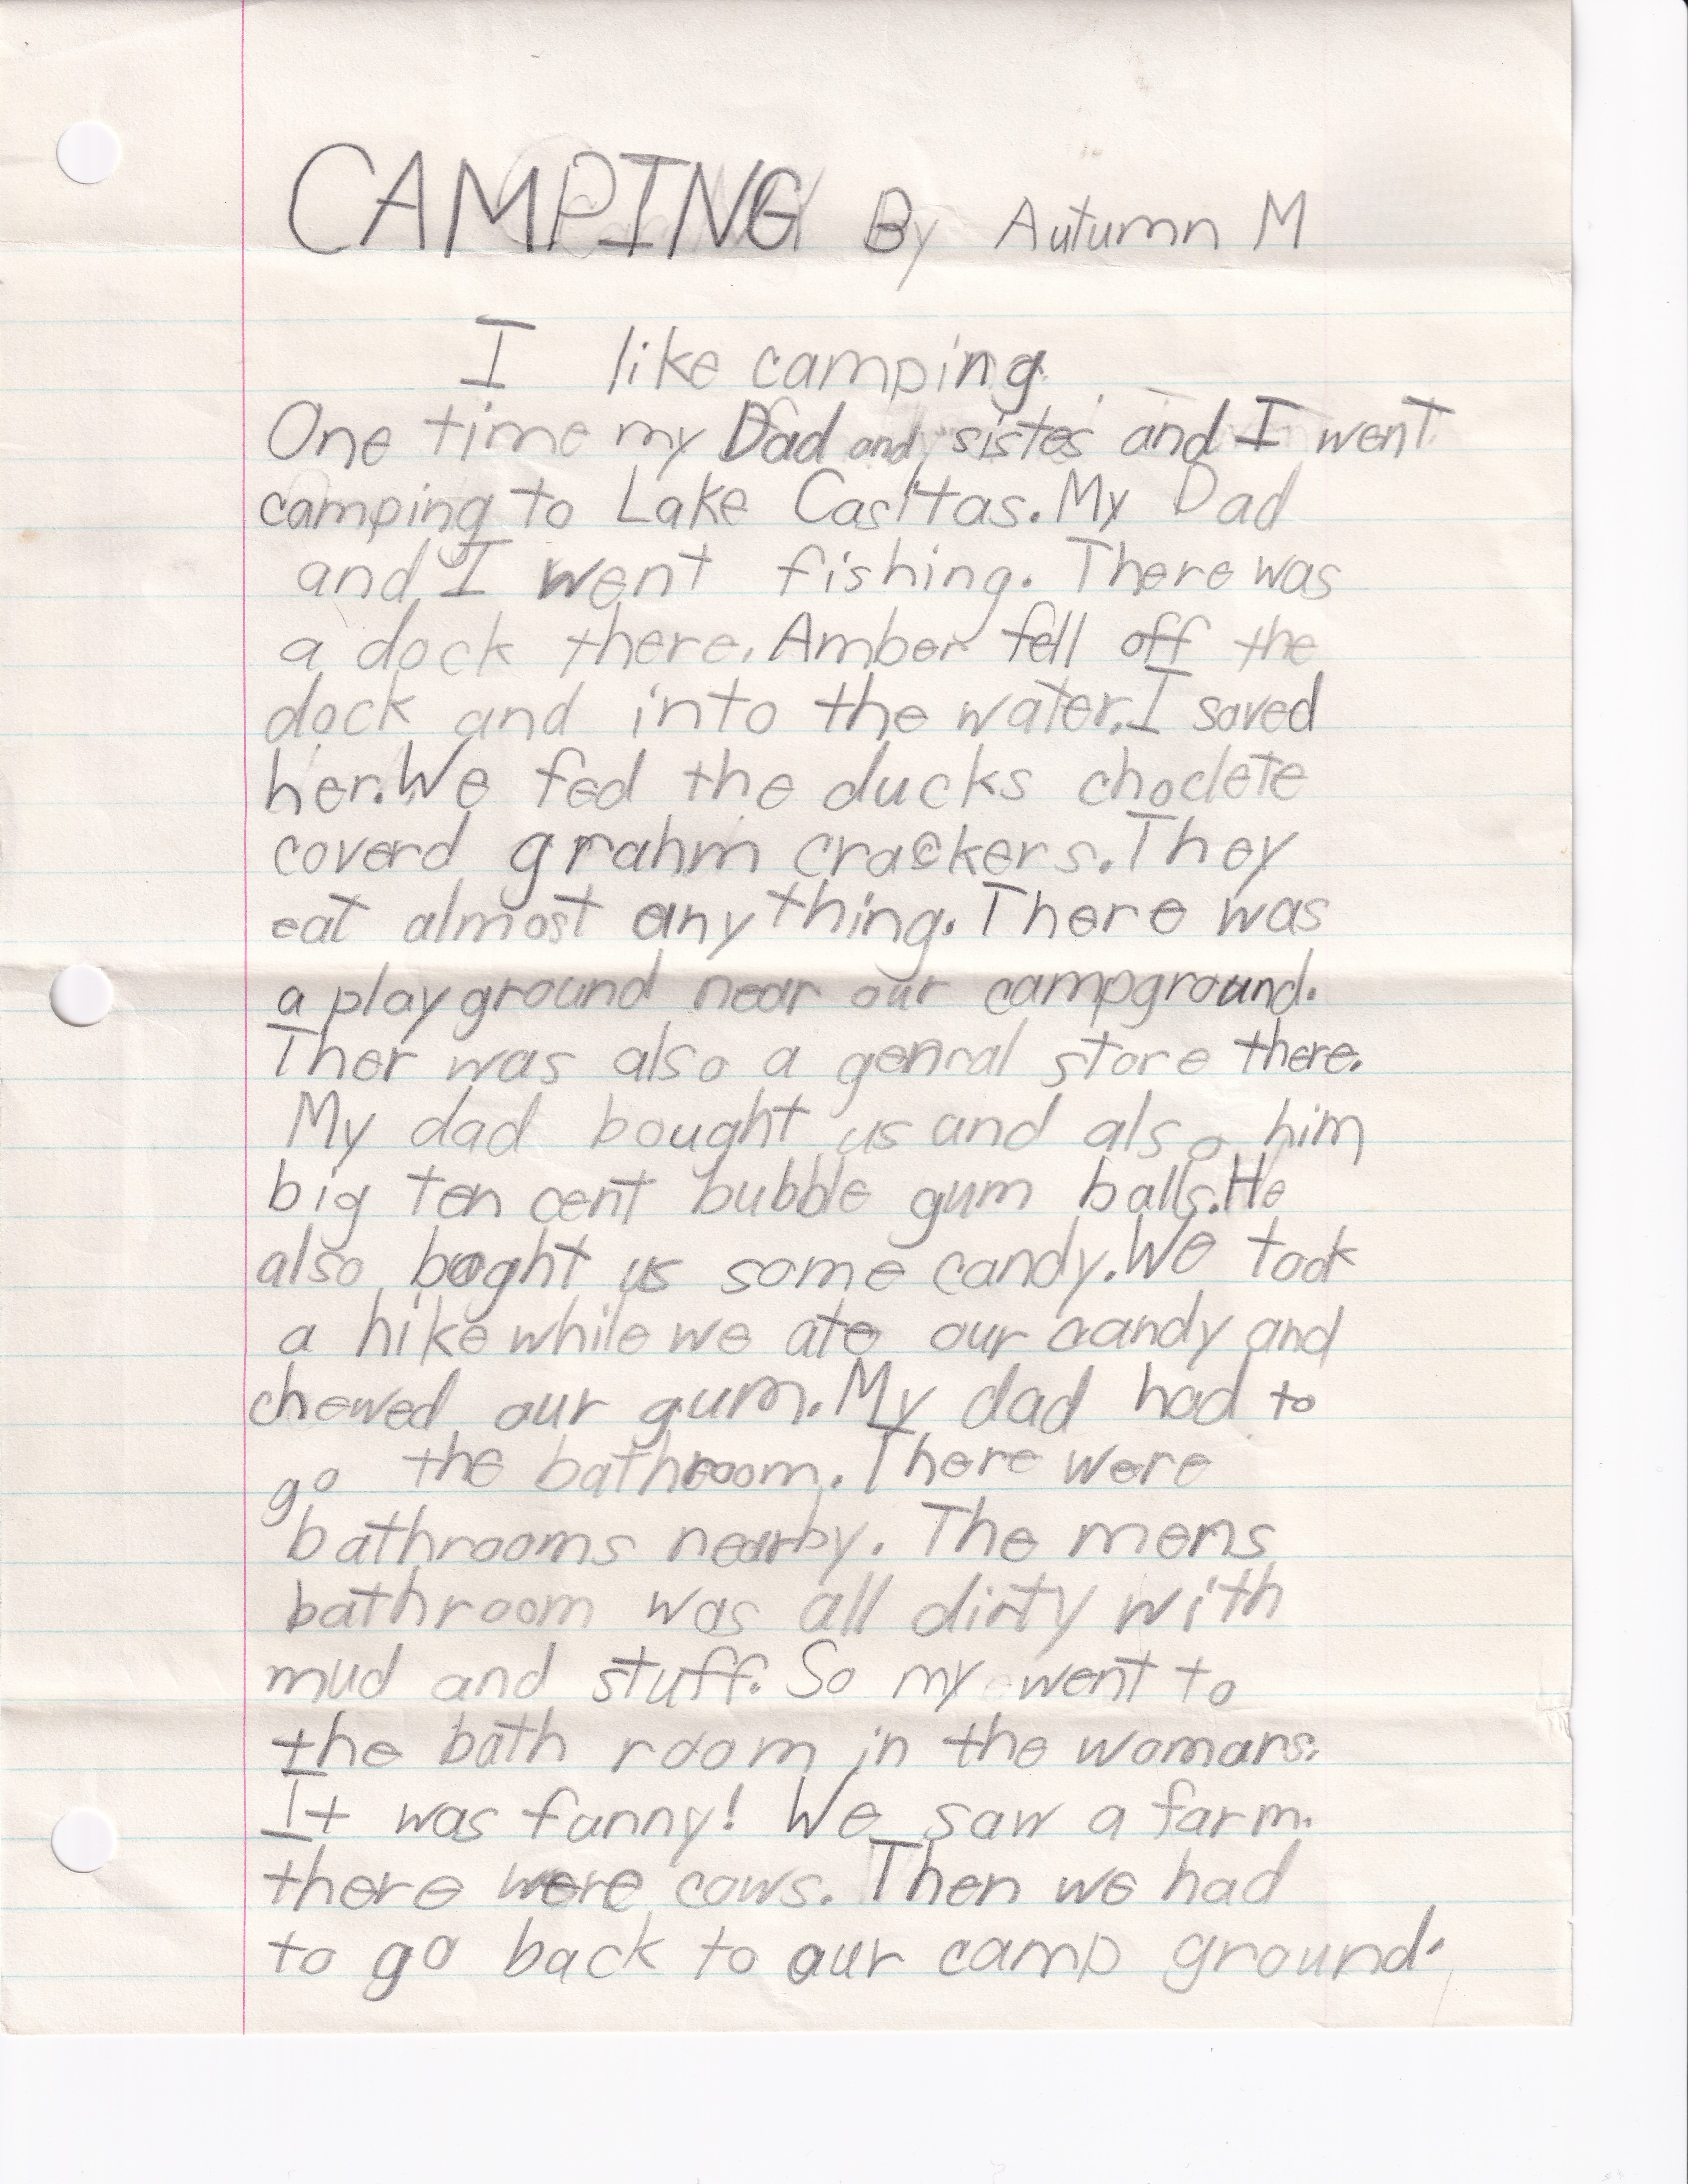 CAMPING By Autumn M
I like camping.
One time my Dad and sister and I went
camping to Lake Casitas. My Dad
and I went fishing. There was
a dock there. Amber fell off the
dock and into the water. I saved
her. We fed the ducks choclete
coverd grahm crackers. They
eat almost anything. There was
a play ground near our campground.
Ther was also a genral store there.
My dad bought us and also him
big ten cent bubble gum balls. He
also boght us some candy. We took
a hike while we ate our candy and
chewed our gum. My dad had to
go the bathroom. There were
bathrooms nearby. The mens
bathroom was all dirty with
mud and stuff. So my went to
the bath room in the womans.
It was funny! We saw a farm.
there were cows. Then we had
to go back to our camp ground.